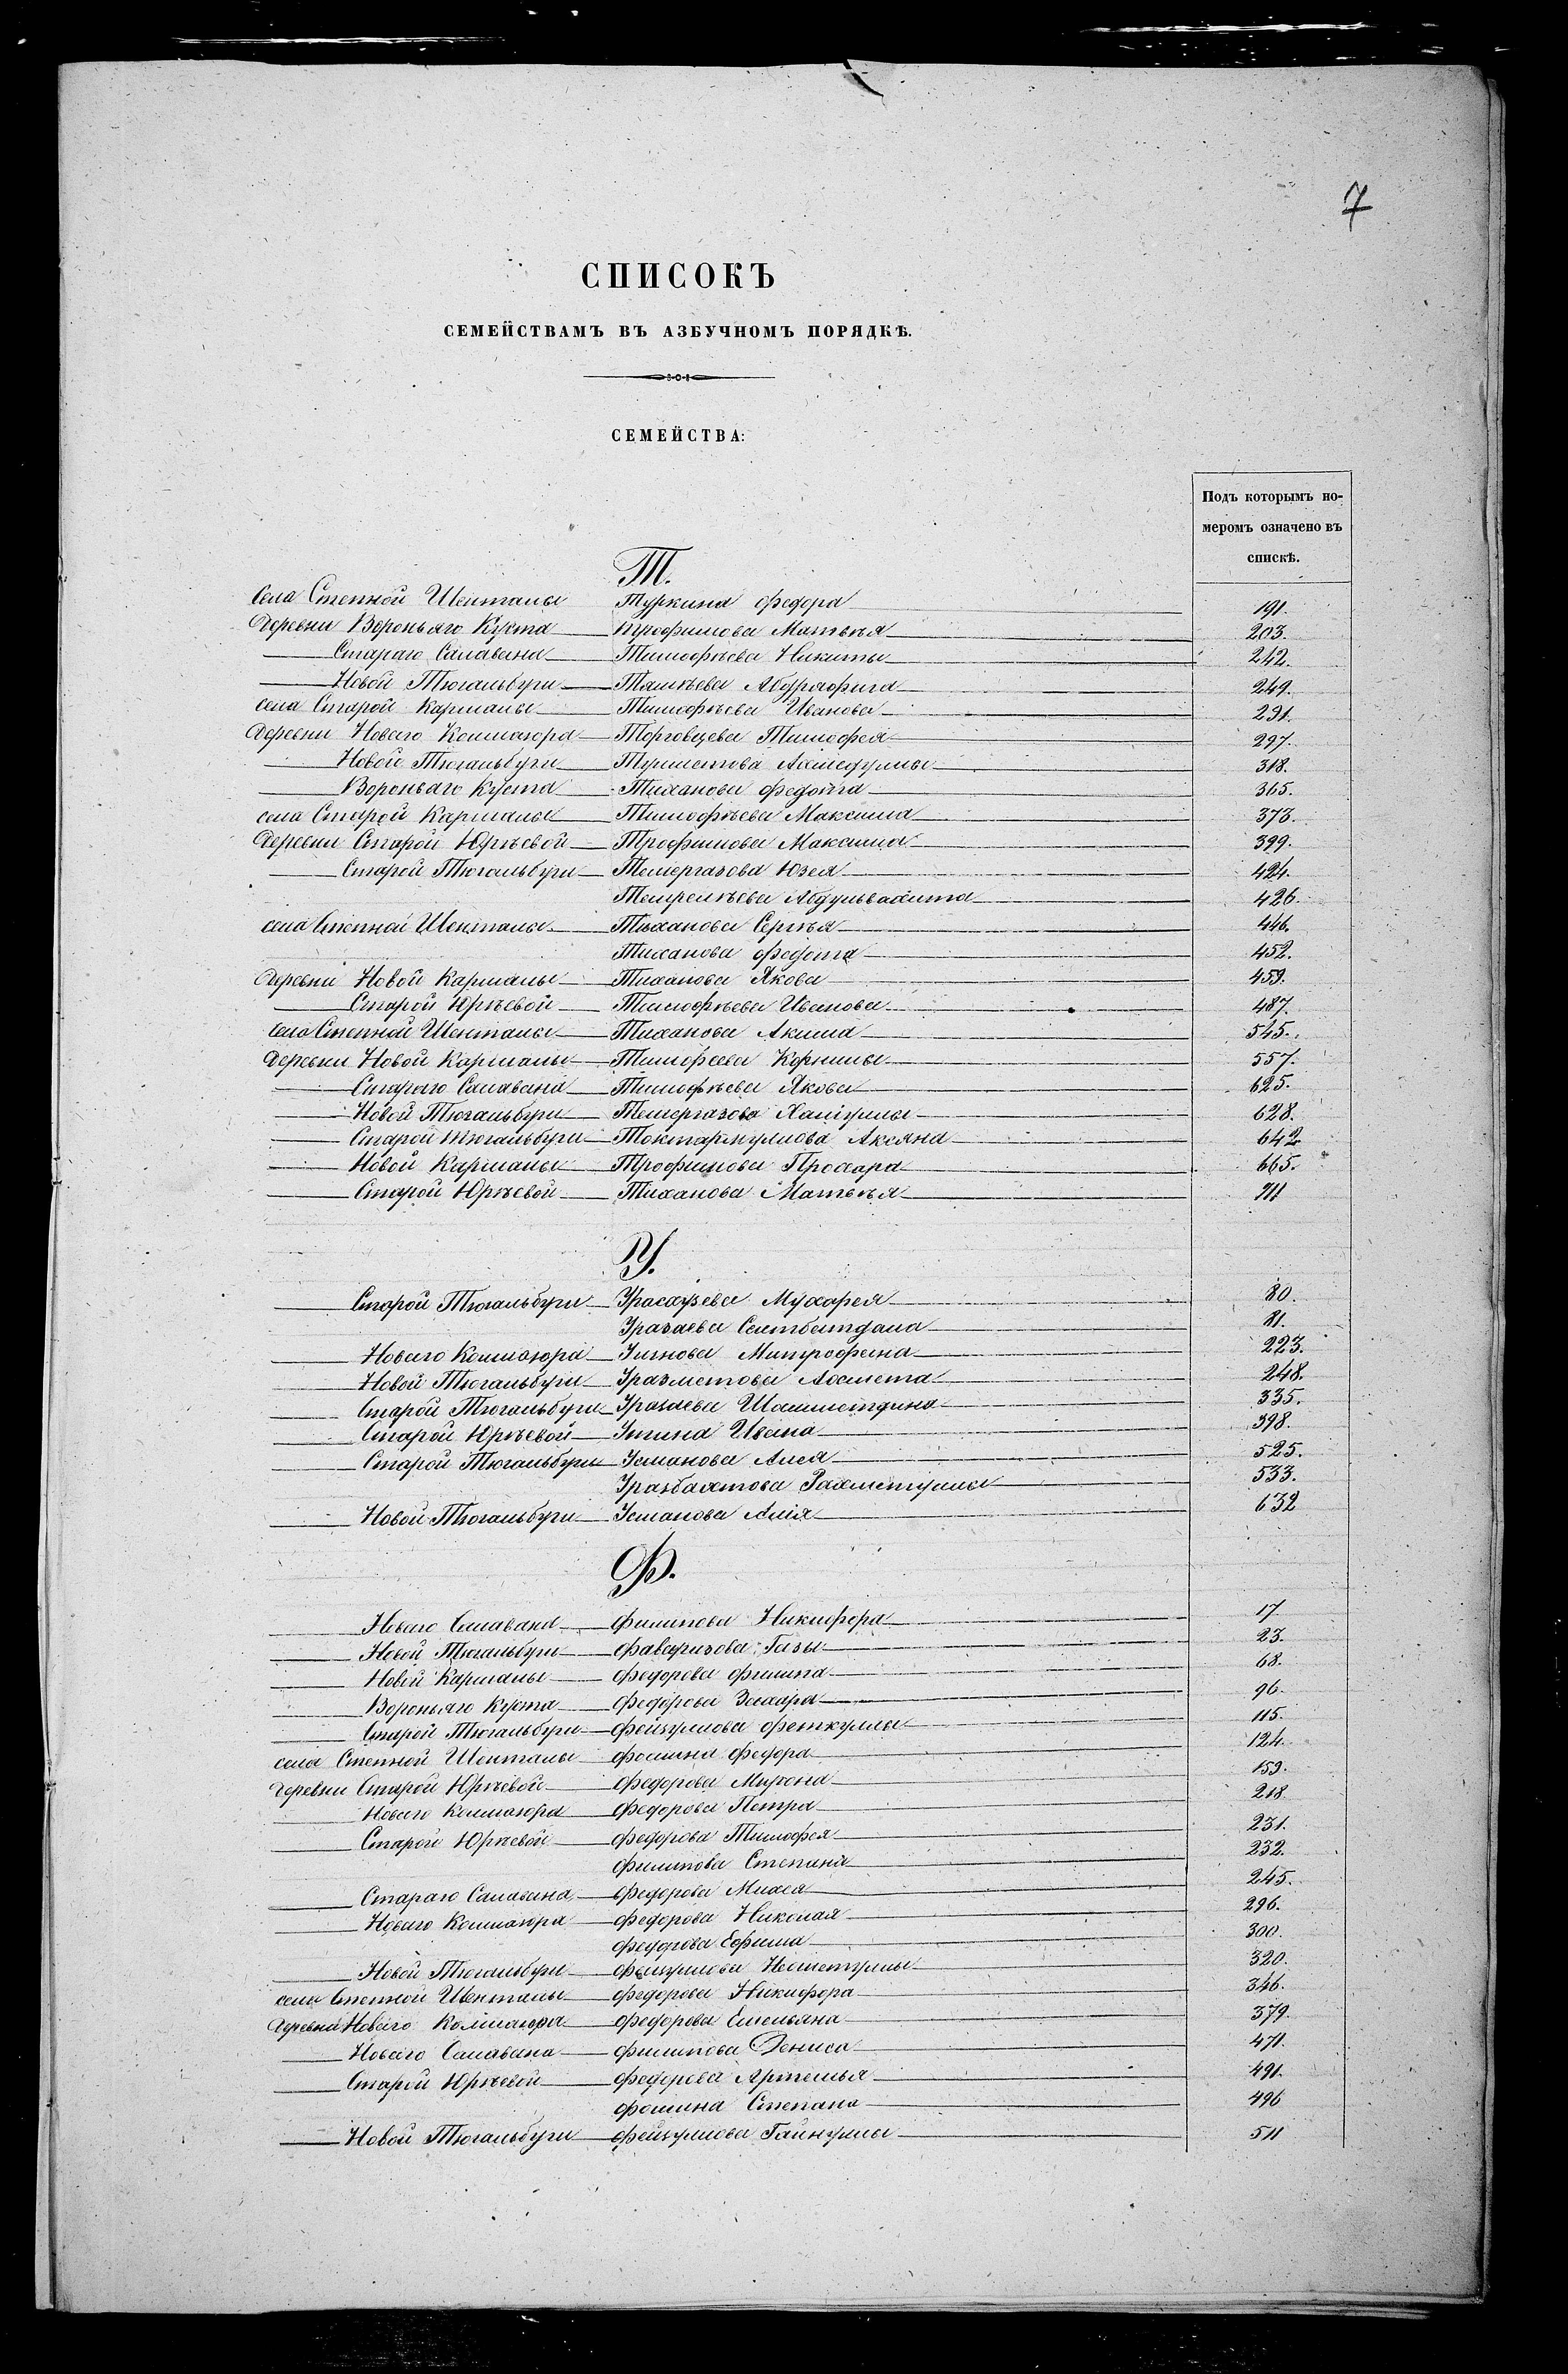 7
СПИСОКЪ
СЕМЕЙСТВАМЪ ВЪ АЗБУЧНОМЪ ПОРЯДКѢ.
СЕМЕЙСТВА:
Подъ которымъ но-
меромъ означено въ
спискѣ.
Т.
села Степной Шенталы Туркина Федора 191.
Деревни Вороньяго Куста Трофимова Матвѣя 203.
Стараго Салавана Тимофѣева Никиты 242.
Новой Тюгальбуги 249.
села Старой Кармалы Тимофѣева Иванова 291.
Деревни Новаго Колмаюра Торговцева Тимофея 297.
Новой Тюгальбуги 318.
Вороньяго Куста Тиханова Федота 365.
села Старой Кармалы Тимофѣева Максима 373.
Деревни Старой Юрѣевой Трофимова Максима 399.
Старой Тюгальбуги Темергазова Юзея 424.
426.
села Степной Шенталы Тиханова Сергѣя 446.
Тиханова Федота 452.
Деревни Новой Кармалы Тиханова Якова 459.
Старой Юрѣевой Тимофѣева Иванова 487.
села Степной Шенталы Тиханова Акима 545.
Деревни Новой Кармалы Тимофеева Корнилы 557.
Стараго Салавана Тимофѣева Якова 625.
Новой Тюгальбуги Темергазова 628.
Старой Тюгальбуги Токтаркулова Аксяна 642
Новой Кармалы Трофимова Прохара 665.
Старой Юрѣевой Тиханова Матвѣя 711
У.
Старой Тюгальбуги 80.
Уразаева 81.
Новаго Колмаюра Митрофана 223.
Новой Тюгальбуги Уразметова Ахмета 248.
Старой Тюгальбуги Уразаева Шамметдина 335.
Старой Юрѣевой Ивана 398.
Старой Тюгальбуги Усманова 525.
Уразбахтова Рахметуллы 533.
Новой Тюгальбуги Усманова Алія 632
Ф.
Новаго Салавана Филипова Никифора 17
Новой Тюгальбуги Газы 23.
Новой Кармалы Федорова Филипа 68.
Вороньяго Куста Федорова Захара 96.
Старой Тюгальбуги Фейзулова Феткуллы 115.
села Степной Шенталы Фомина Федора 124.
деревни Старой Юрѣевой Федорова Мирона 159.
Новаго Колмаюра Федорова Петра 218.
Старой Юрѣевой Федорова Тимофея 231.
Филипова Степана 232.
Стараго Салавана Федорова Михея 245.
Новаго Колмаюра Федорова Николая 296.
Федорова Ефима 300.
Новой Тюгальбуги Фейзулова 320.
села Степной Шенталы Федорова Никифора 346.
Деревни Новаго Колмаюра Федорова Емельяна 379.
Новаго Салавана Филипова Дениса 471.
Старой Юрѣевой Федорова Артемья 491.
Фомина Степана 496
Новой Тюгальбуги Фейзулова Гайнуллы 511